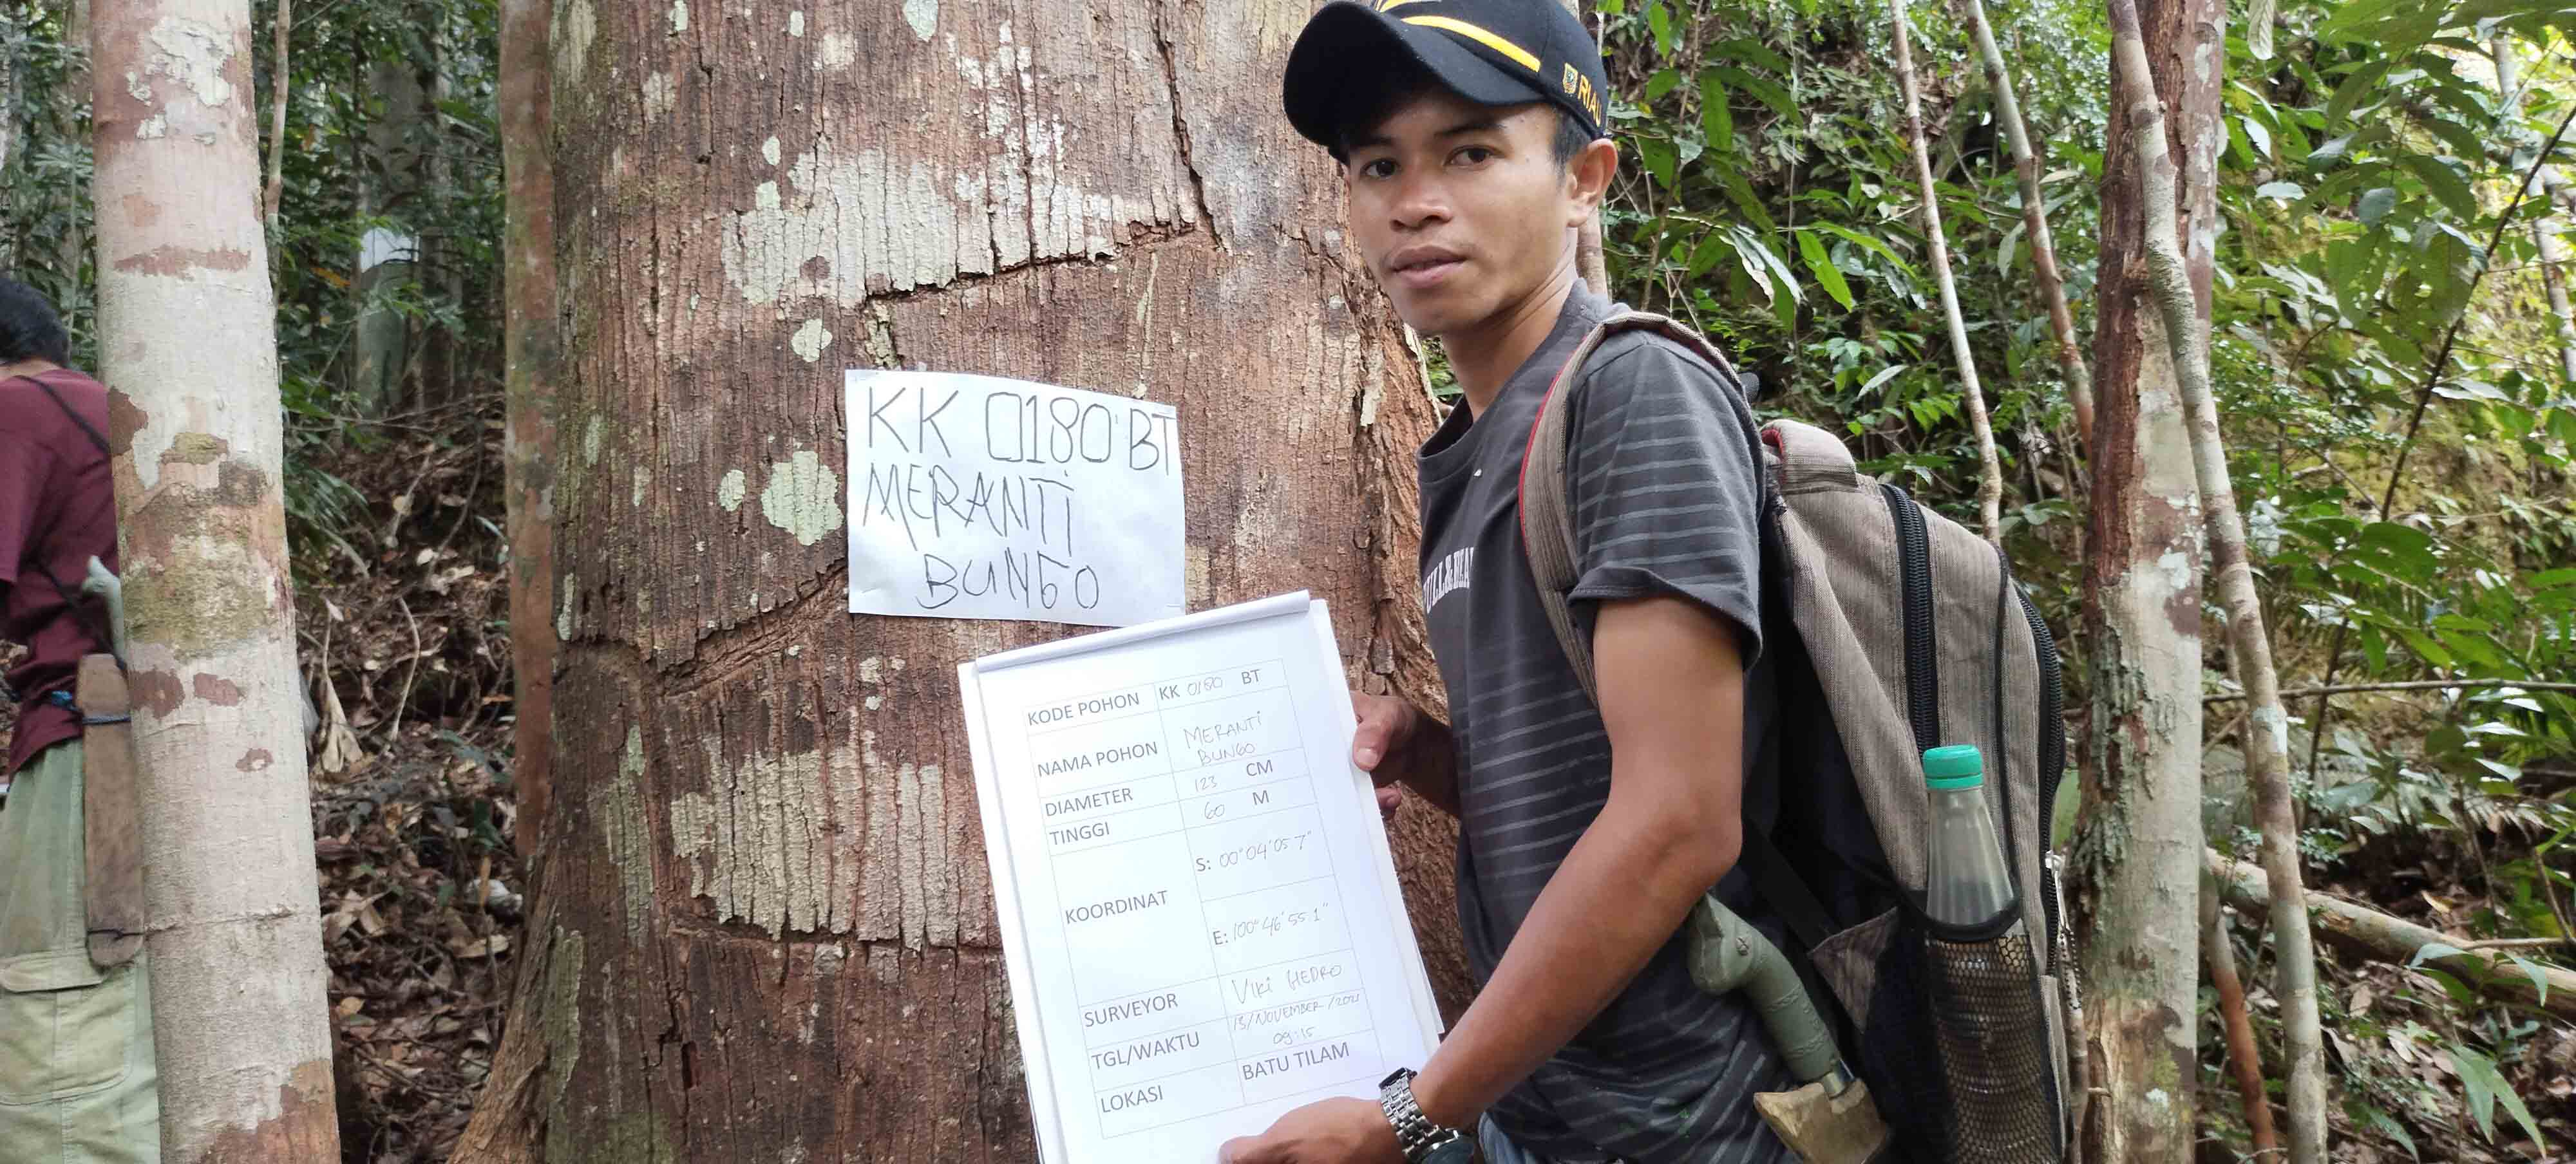 RIAU
KK 0180 BT
MERANTI
BUNGO
KODE POHON KK 0180 BT
NAMA POHON MERANTI
BUNGO
DIAMETER 123 CM
TINGGI 60 M
KOORDINAT S: 00° 04' 05 7"
E: 100° 46' 55 1"
SURVEYOR VIKI HEDRO
TGL/WAKTU 13/NOVEMBER/2021
09:15
LOKASI BATU TILAM